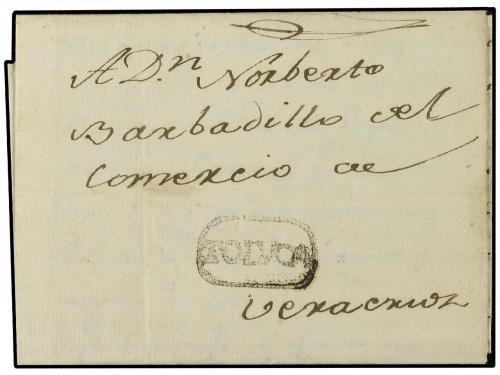 A D.n Norberto
Barbadillo del
Comercio de
TOLUCA
Veracruz